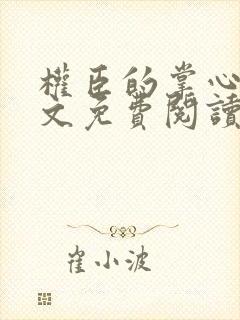 權臣的掌心
文免費閱讀
崔小波